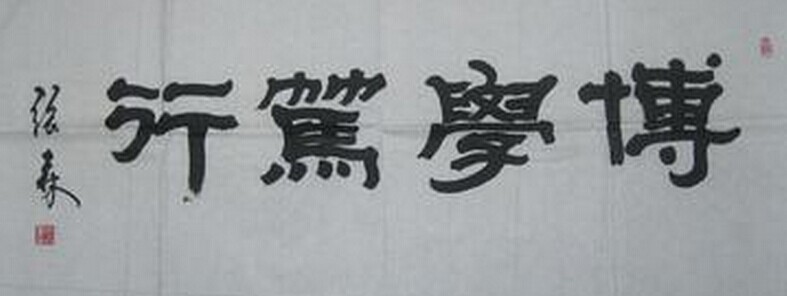 博學篤行
張森